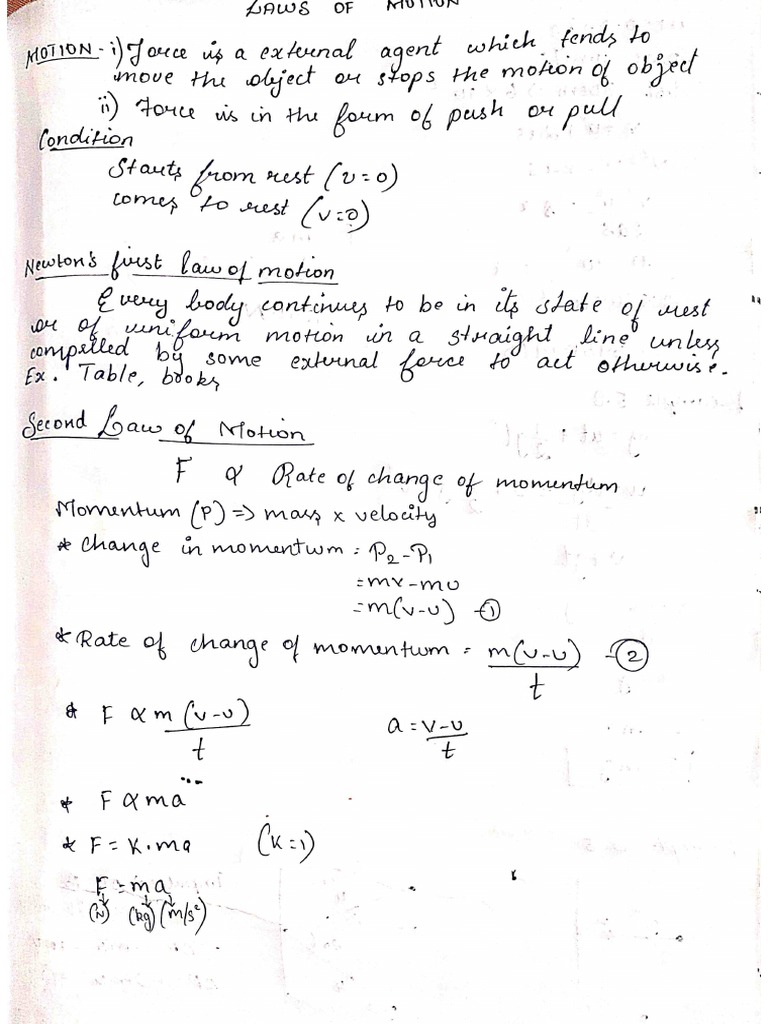 LAWS OF MOTION
MOTION - i) Force is a external agent which tends to
move the object or stops the motion of object
ii) Force is in the form of push or pull
Condition
Starts from rest (u=0)
comes to rest (v=0)
Newton's first law of motion
Every body continues to be in its state of rest
or of uniform motion in a straight line unless
compelled by some external force to act otherwise.
Ex. Table, books
Second Law of Motion
F ∝ Rate of change of momentum
Momentum (P) => mass x velocity
* change in momentum = P₂-P₁
= mv - mu
= m(v-u) -①
* Rate of change of momentum = m(v-u)/t -②
* F ∝ m(v-u)/t a = v-u/t
* F ∝ ma
* F = K.ma (K=1)
F = ma
(N) (kg) (m/s²)